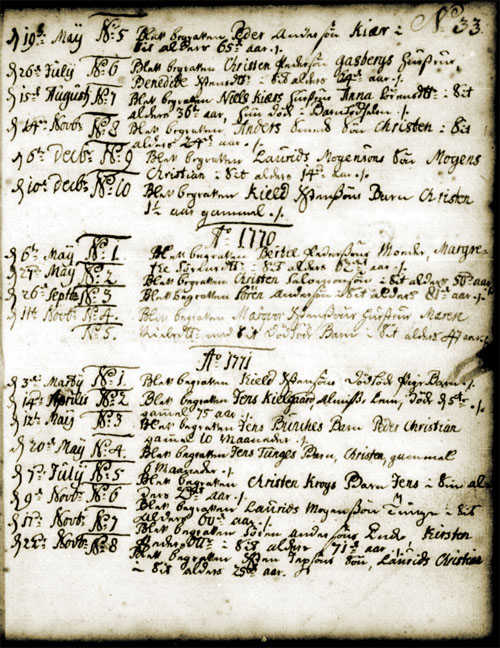 No 33.
d 19de Maÿ No 5 Blev begraven Peder Andersøn Kiær i
sit alders 65te aar.
d 26de Julÿ No 6 Blev begraven Christen Pedersøn Gasbergs Hustrue
Benedite sit alders aar.
d 15de August No 7 Blev begraven Niels Kiærs Hustrue Anna i sit
alders 36te aar.
d 14de Novbr. No 8 Blev begraven Anders Søn Christen i sit
alders aar.
d 6te Decbr. No 9 Blev begraven Laurids Mogensøns Søn Mogens
Christian i sit alders 14de aar.
d 10de Decbr. No 10 Blev begraven Kield Barn Christen
1½ aar gammel.
Ao 1770
d 6te Maÿ No 1. Blev begraven Bertel Pedersøns Moder, Margre-
te i sit alders 82de aar.
d 27de Maÿ No 2. Blev begraven Christen Salomonsøn i sit alders aar
d 26de Septbr. No 3 Blev begraven Søren Andersøn i sit alders 81de aar.
d 11te Novbr. No 4. Blev begraven Hustrue Maren
No 5. med sit Dødfød Barn i sit alders 47 aar.
Ao 1771
d 3de No 1. Blev begraven Kield Dødfød Pige Barn.
d 14de Aprilis No 2 Blev begraven Jens Kielgaard Lem, død d 5te
gammel 75 aar.
d 12te Maij No 3 Blev begraven Jens Barn Peder Christian
gammel 10 Maaneder.
d 20de Maÿ No 4. Blev begraven Jens Tunges Barn, Christen, gammel
6 Maaneder.
d 7de Julÿ No 5 Blev begraven Christen Kroys Barn Jens i sin al-
ders 2det aar.
d 9de Novbr. No 6 Blev begraven Laurids Mogensøn Tunge i sit
alders 60de aar.
d 17de Novbr. No 7 Blev begraven Søren Andersøns Enke Kirsten
i sit alders 71de aar.
d 22de Novbr. No 8 Blev begraven Jepsøns Søn, Laurids Christian
i sit alders 25de aar.